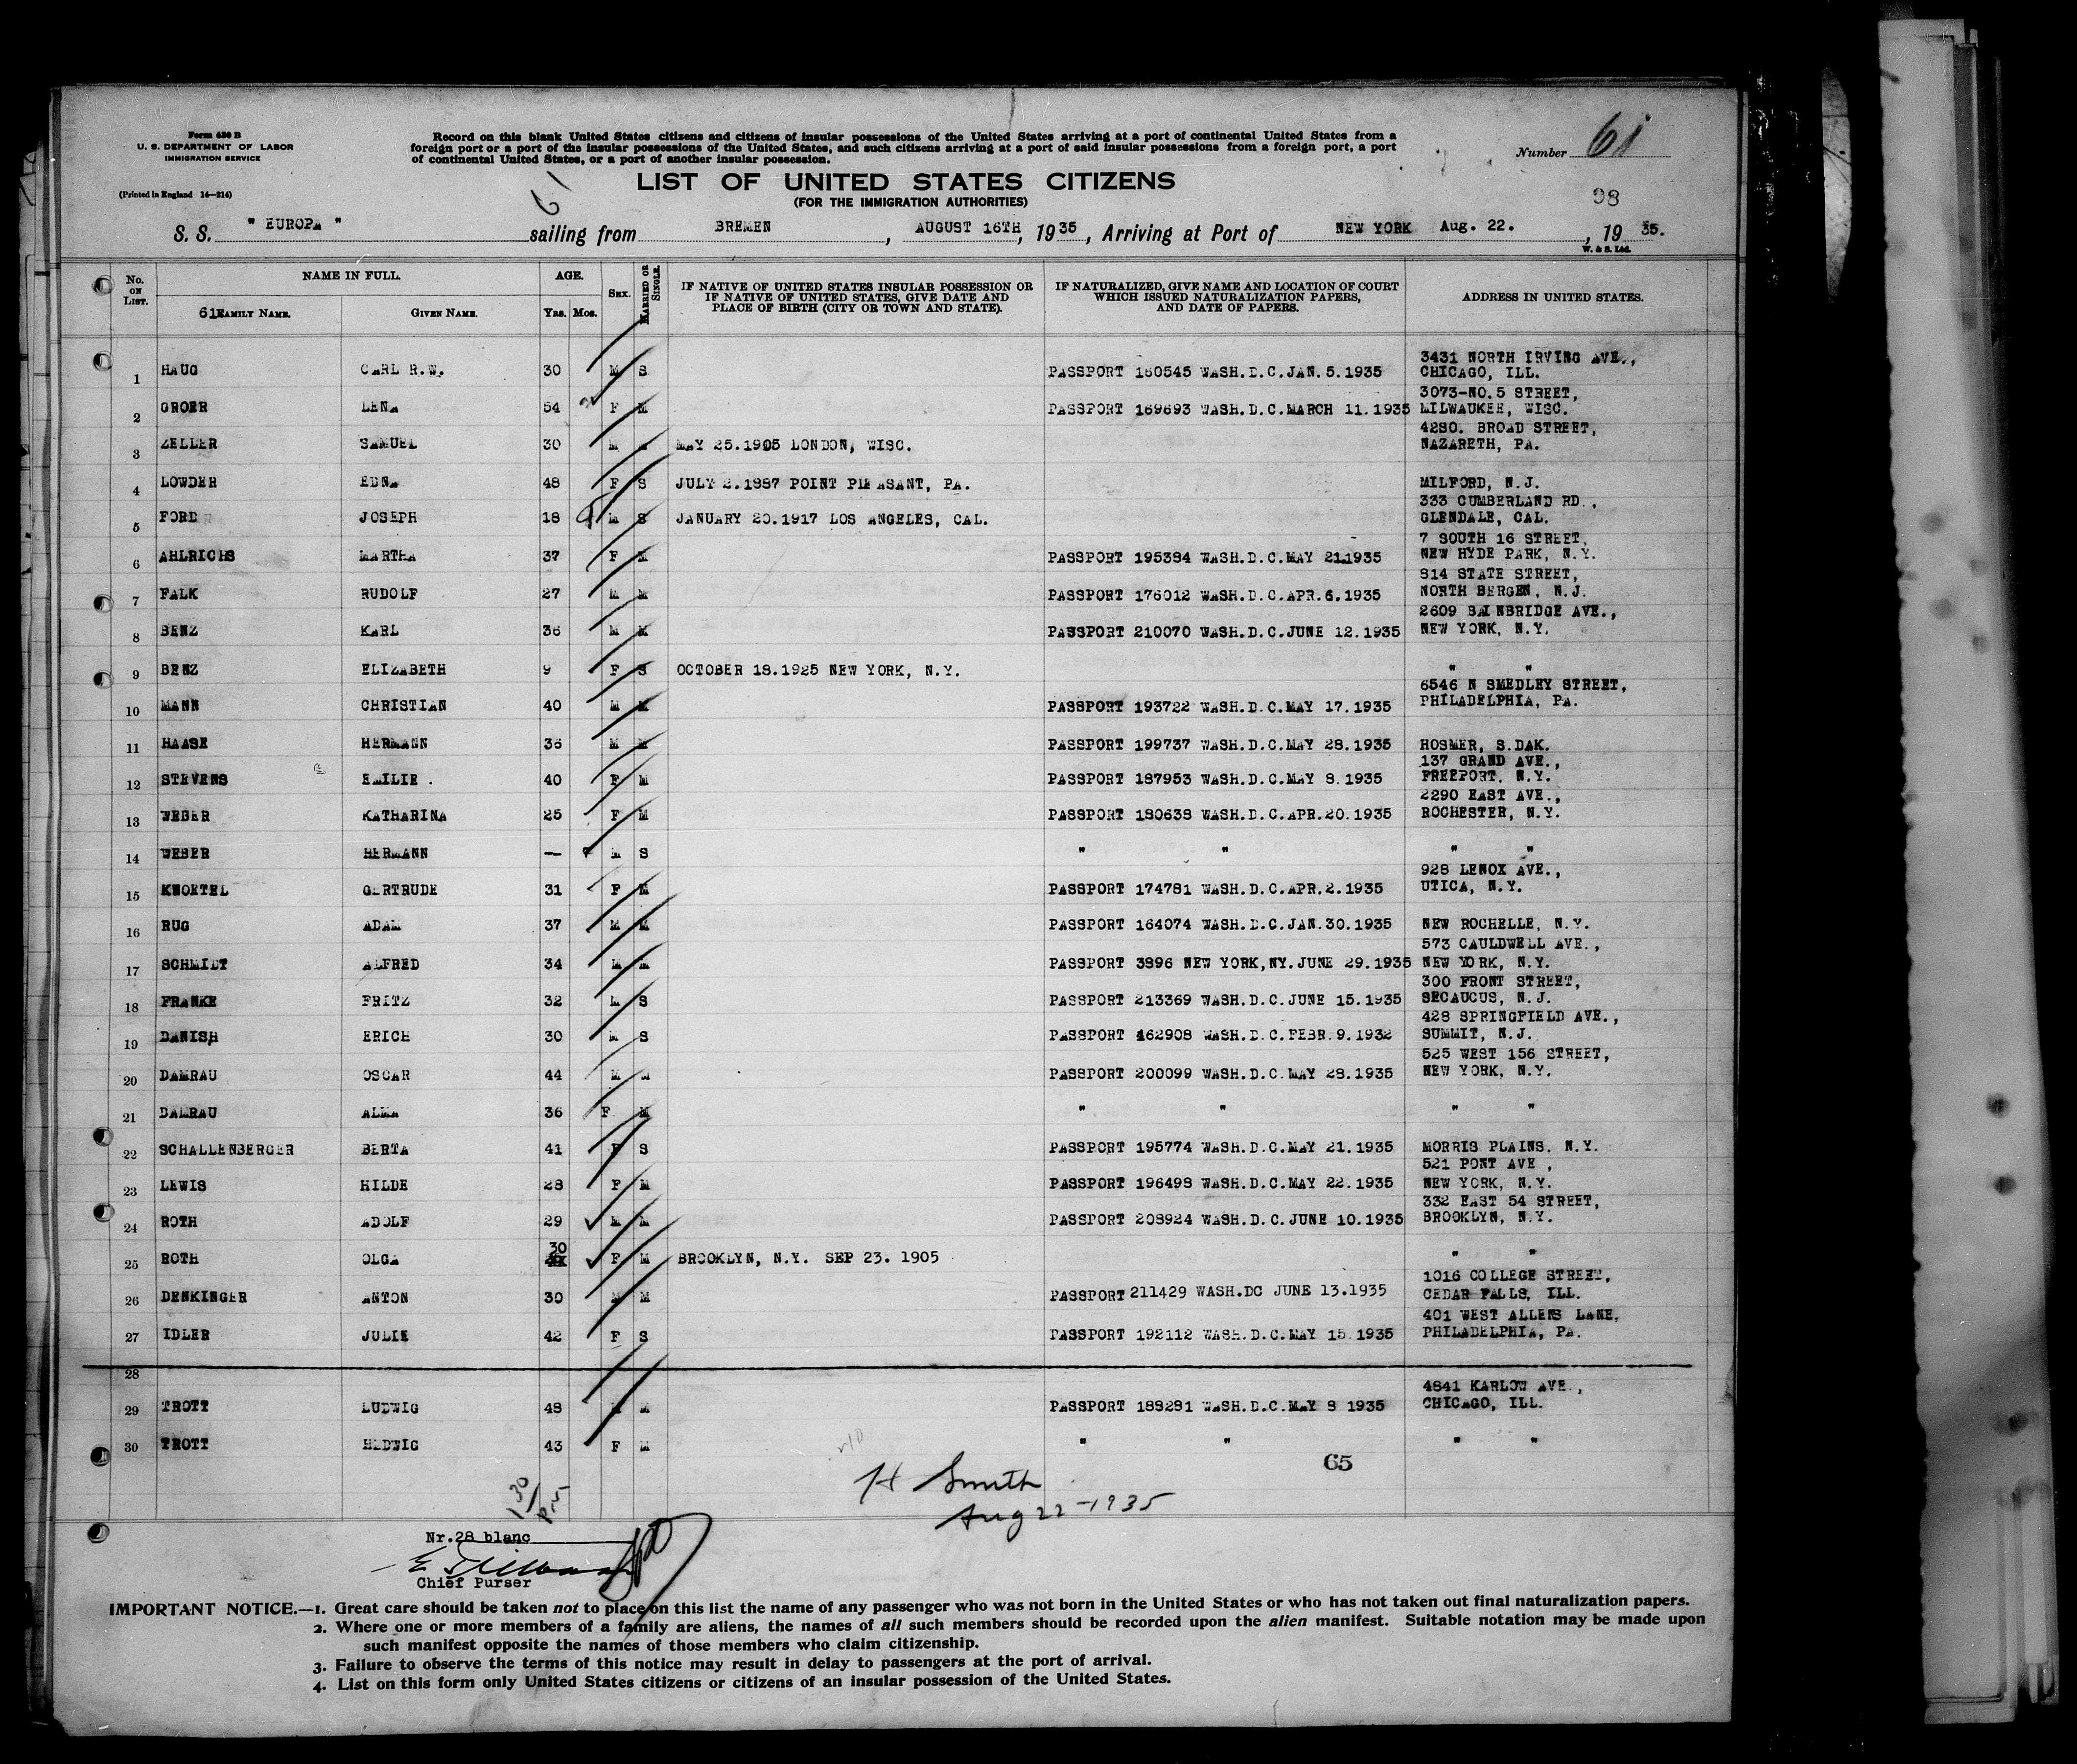 Form 630 B
U. S. DEPARTMENT OF LABOR
IMMIGRATION SERVICE
(Printed in England 14—214)
Record on this blank United States citizens and citizens of insular possessions of the United States arriving at a port of continental United States from a
foreign port or a port of the insular possessions of the United States, and such citizens arriving at a port of said insular possessions from a foreign port, a port
of continental United States, or a port of another insular possession.
Number 61
LIST OF UNITED STATES CITIZENS
(FOR THE IMMIGRATION AUTHORITIES)
61
98
S. S. " EUROPA " sailing from BREMEN, AUGUST 16TH, 1935, Arriving at Port of NEW YORK Aug. 22., 1935.
W. & S. Ltd.
No. ON LIST. NAME IN FULL. AGE. SEX. MARRIED OR SINGLE. IF NATIVE OF UNITED STATES INSULAR POSSESSION OR IF NATIVE OF UNITED STATES, GIVE DATE AND PLACE OF BIRTH (CITY OR TOWN AND STATE). IF NATURALIZED, GIVE NAME AND LOCATION OF COURT WHICH ISSUED NATURALIZATION PAPERS, AND DATE OF PAPERS. ADDRESS IN UNITED STATES.
61 FAMILY NAME. GIVEN NAME. YRS. MOS.
3431 NORTH IRVING AVE.,
1 HAUG CARL R.W. 30 M S PASSPORT 160545 WASH.D.C.JAN.5.1935 CHICAGO, ILL.
3073-NO.5 STREET,
2 GROER LENA 54 F M PASSPORT 169693 WASH.D.C.MARCH 11.1935 MILWAUKEE, WISC.
4280. BROAD STREET,
3 ZELLER SAMUEL 30 M MAY 25.1905 LONDON, WISC. NAZARETH, PA.
4 LOWDER EDNA 48 F S JULY 2.1887 POINT PLEASANT, PA. MILFORD, N.J.
333 CUMBERLAND RD.,
5 FORD JOSEPH 18 M S JANUARY 20.1917 LOS ANGELES, CAL. GLENDALE, CAL.
7 SOUTH 16 STREET,
6 AHLRICHS MARTHA 37 F M PASSPORT 195384 WASH.D.C.MAY 21.1935 NEW HYDE PARK, N.Y.
814 STATE STREET,
7 FALK RUDOLF 27 M M PASSPORT 176012 WASH.D.C.APR.6.1935 NORTH BERGEN, N.J.
2609 BAINBRIDGE AVE.,
8 BENZ KARL 36 M M PASSPORT 210070 WASH.D.C.JUNE 12.1935 NEW YORK, N.Y.
9 BENZ ELIZABETH 9 F S OCTOBER 18.1925 NEW YORK, N.Y. " "
6546 N SMEDLEY STREET,
10 MANN CHRISTIAN 40 M M PASSPORT 193722 WASH.D.C.MAY 17.1935 PHILADELPHIA, PA.
11 HAASE HERMANN 36 M M PASSPORT 199737 WASH.D.C.MAY 28.1935 HOSMER, S.DAK.
137 GRAND AVE.,
12 STEVENS EMILIE . 40 F M PASSPORT 187953 WASH.D.C.MAY 8.1935 FREEPORT, N.Y.
2290 EAST AVE.,
13 WEBER KATHARINA 25 F M PASSPORT 180638 WASH.D.C.APR.20.1935 ROCHESTER, N.Y.
14 WEBER HERMANN — M S " " " "
928 LENOX AVE.,
15 KNOETEL GERTRUDE 31 F M PASSPORT 174781 WASH.D.C.APR.2.1935 UTICA, N.Y.
16 RUG ADAM 37 M M PASSPORT 164074 WASH.D.C.JAN.30.1935 NEW ROCHELLE, N.Y.
573 CAULDWELL AVE.,
17 SCHMIDT ALFRED 34 M M PASSPORT 3896 NEW YORK,NY.JUNE 29.1935 NEW YORK, N.Y.
300 FRONT STREET,
18 FRANKE FRITZ 32 M S PASSPORT 213369 WASH.D.C.JUNE 15.1935 SECAUCUS, N.J.
428 SPRINGFIELD AVE.,
19 DANISH ERICH 30 M S PASSPORT 462908 WASH.D.C.FEBR.9.1932 SUMMIT, N.J.
525 WEST 156 STREET,
20 DAMRAU OSCAR 44 M M PASSPORT 200099 WASH.D.C.MAY 28.1935 NEW YORK, N.Y.
21 DAMRAU ALMA 36 F M " " " "
22 SCHALLENBERGER BERTA 41 F S PASSPORT 195774 WASH.D.C.MAY 21.1935 MORRIS PLAINS. N.Y.
521 PONT AVE ,
23 LEWIS HILDE 28 F M PASSPORT 196498 WASH.D.C.MAY 22.1935 NEW YORK, N.Y.
332 EAST 54 STREET,
24 ROTH ADOLF 29 M M PASSPORT 208924 WASH.D.C.JUNE 10.1935 BROOKLYN, N.Y.
25 ROTH OLGA 30 F M BROOKLYN, N.Y. SEP 23. 1905 " "
1016 COLLEGE STREET,
26 DENKINGER ANTON 30 M M PASSPORT 211429 WASH.DC JUNE 13.1935 CEDAR FALLS, ILL.
401 WEST ALLENS LANE,
27 IDLER JULIE 42 F S PASSPORT 192112 WASH.D.C.MAY 15.1935 PHILADELPHIA, PA.
28
4841 KARLOW AVE.,
29 TROTT LUDWIG 48 M M PASSPORT 188281 WASH.D.C.MAY 8 1935 CHICAGO, ILL.
30 TROTT HEDWIG 43 F M " " " "
65
H Smith
Aug 22-1935
Nr.28 blanc
Chief Purser
IMPORTANT NOTICE.—1. Great care should be taken not to place on this list the name of any passenger who was not born in the United States or who has not taken out final naturalization papers.
2. Where one or more members of a family are aliens, the names of all such members should be recorded upon the alien manifest. Suitable notation may be made upon
such manifest opposite the names of those members who claim citizenship.
3. Failure to observe the terms of this notice may result in delay to passengers at the port of arrival.
4. List on this form only United States citizens or citizens of an insular possession of the United States.